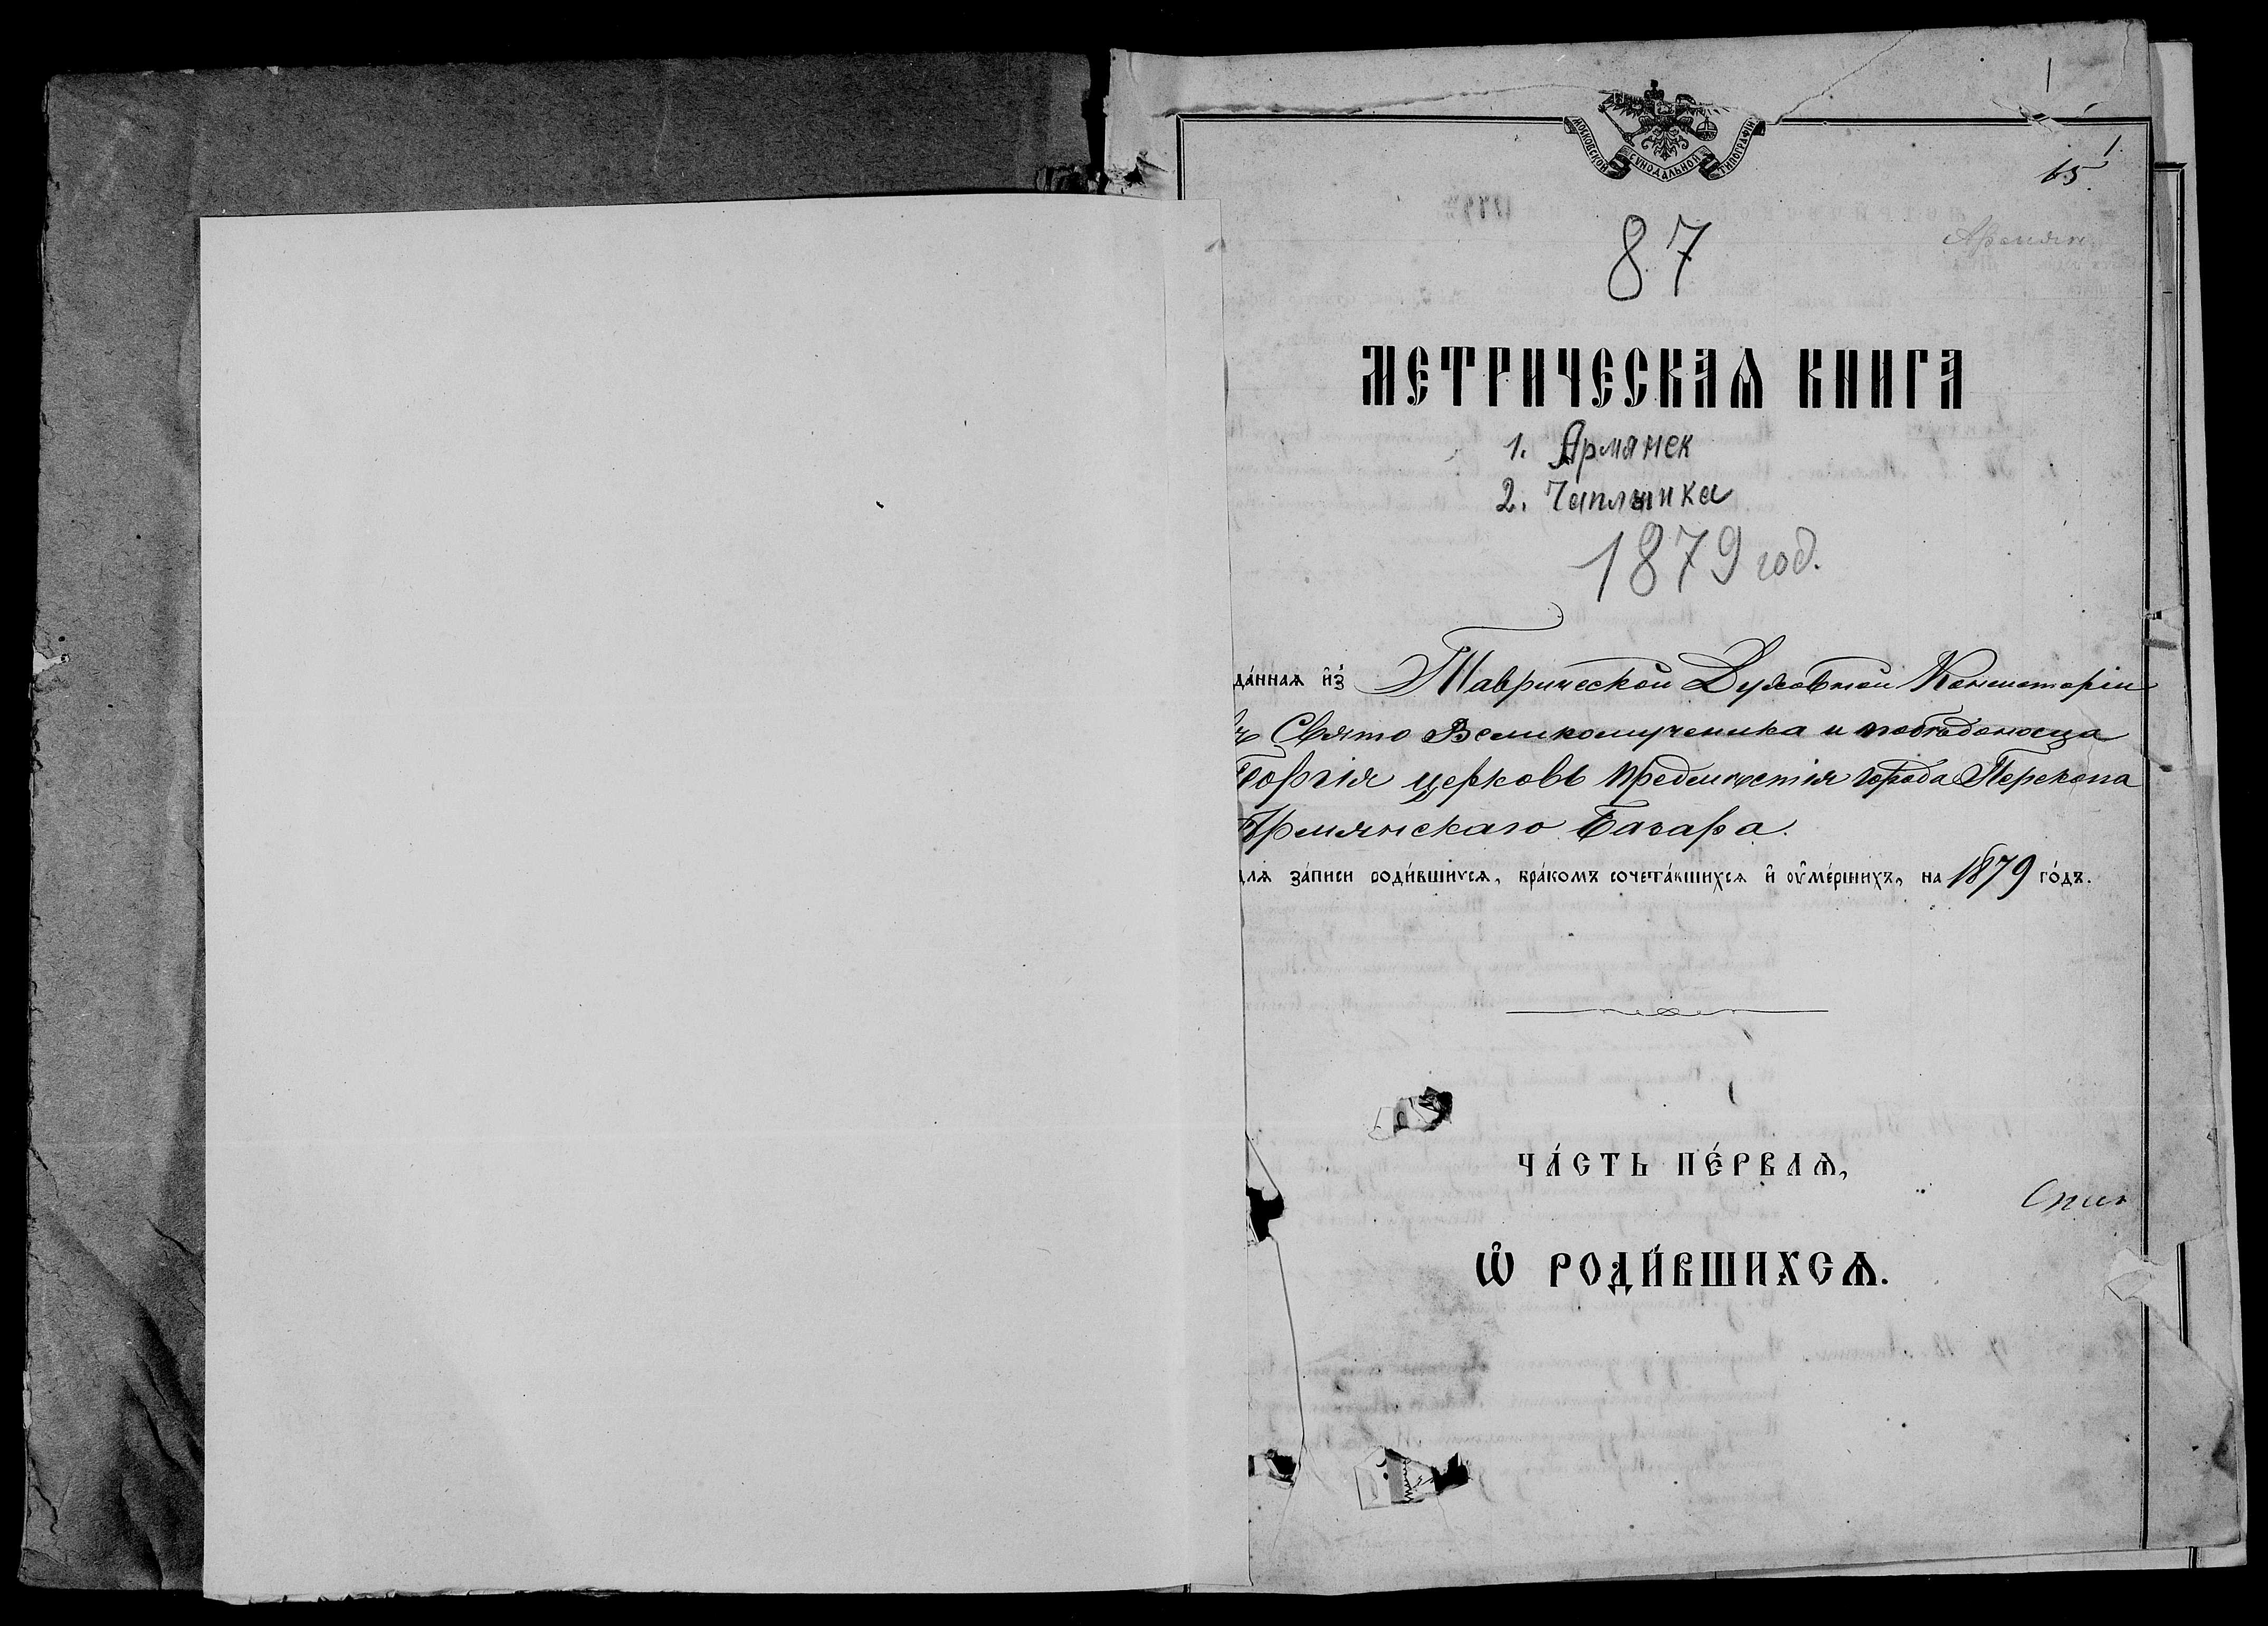 МОСКОВСКОЙ СѴНОДАЛЬНОЙ ТИПОГРАФІИ
1
1
65.
87
Армянс
МЕТРИЧЕСКАѦ КНИГА
1. Армянск
2. Чаплинка
1879 год.
да́нная и҆з̾ Таврической Духовной Консисторіи
Свято Великомученика и победоносца
Георгія церковь предместія города Перекопа
Армянскаго Базара.
для за́писи роди́вшихся, бра́комъ сочета́вшихся и҆ оу҆ме́ршихъ, на 1879 го́дъ.
ЧА́СТЬ ПЕ́РВАѦ,
Ѡ҆ РОДИ́ВШИХСѦ.